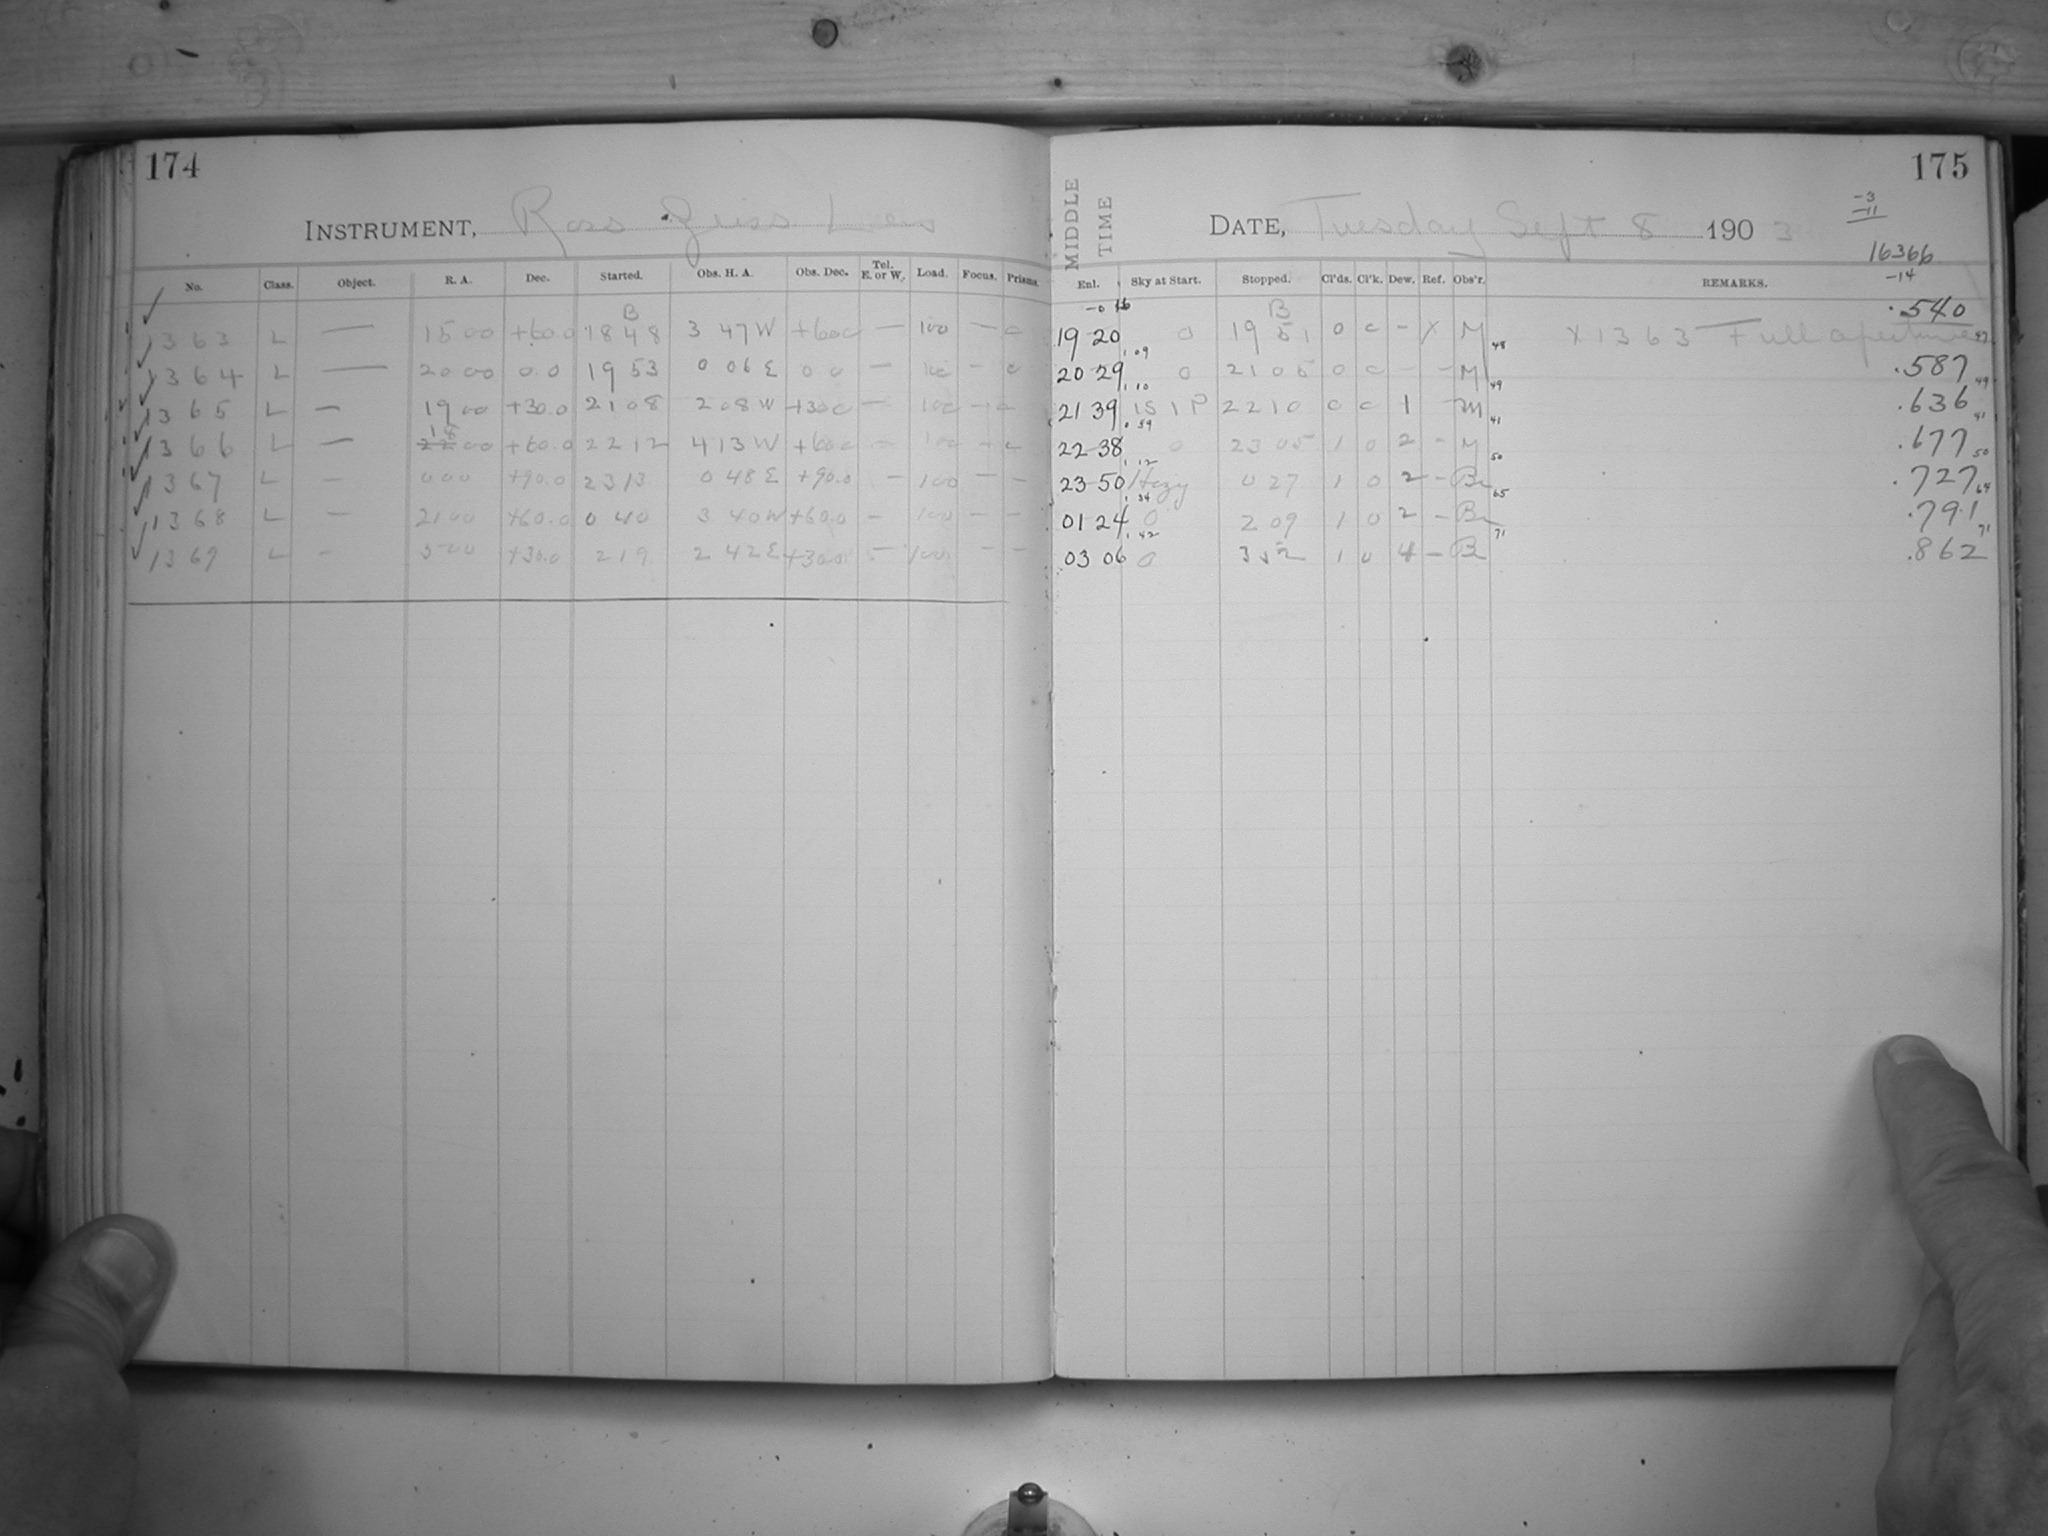 174
INSTRUMENT, Ross Zeiss Lens
No. Class. Object. R. A. Dec. Started. Obs. H. A. Obs. Dec. Tel. E. or W. Load. Focus. Prisms.
B
1363 L — 15 00 +60.0 18 48 3 47 W +60 0 — 100 — 0
1364 L — 20 00 0.0 19 53 0 06 E 0 0 — 100 — 0
1365 L — 19 00 +30.0 21 08 2 08 W +30 0 — 100 — 0
18
1366 L — 22 00 +60.0 22 12 4 13 W +60 0 — 100 — 0
1367 L — 0 00 +90.0 23 13 0 48 E +90.0 — 100 — —
1368 L — 21 00 +60.0 0 40 3 40 W +60.0 — 100 — —
1369 L — 5 00 +30.0 2 19 2 42 E +30.0 — 100 — —
175
MIDDLE TIME
DATE, Tuesday Sept 8 1903
-3
-11
16366
-14
Enl. Sky at Start. Stopped. Cl'ds. Cl'k. Dew. Ref. Obs'r. REMARKS.
-0 16 B .540
19 20 0 19 51 0 0 - X M X 1363 — Full aperture
1.09 48 47
20 29 0 21 05 0 0 - - M .587
1.10 49 49
21 39 1S 1P 22 10 0 0 1 - M .636
0.59 41 41
22 38 0 23 05 1 0 2 - M .677
1.12 50 50
23 50 Hazy 0 27 1 0 2 - Br .727
1.34 65 64
01 24 0 2 09 1 0 2 - Br .791
1.42 71 71
03 06 0 3 52 1 0 4 - Br .862